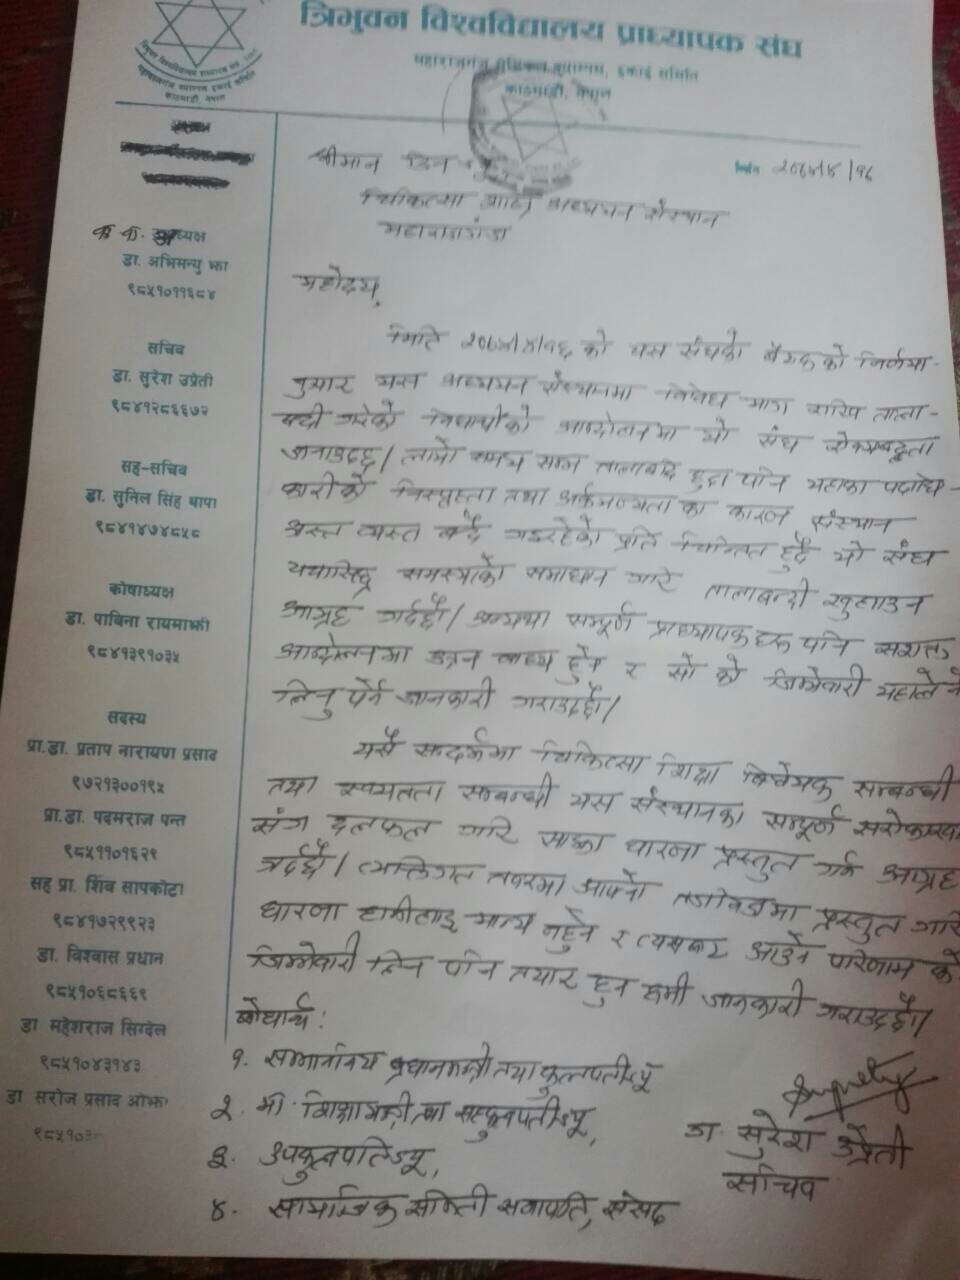 त्रिभुवन विश्वविद्यालय प्राध्यापक संघ
महाराजगंज मेडिकल क्याम्पस, इकाई समिति
काठमाडौं, नेपाल
क. का. अध्यक्ष
डा. अभिमन्यु झा
९८५१०११६८४
सचिव
डा. सुरेश उप्रेती
९८४१२८६६७२
सह-सचिव
डा. सुनिल सिंह थापा
९८४१४७४८५८
कोषाध्यक्ष
डा. पाबिना रायमाझी
९८४१३९१०३५
सदस्य
प्रा.डा. प्रताप नारायण प्रसाद
९७२१३००१९५
प्रा.डा. पदमराज पन्त
९८५११०१६२९
सह प्रा. शिव सापकोटा
९८४१७२९९२३
डा. विश्वास प्रधान
९८५१०६८६६९
डा महेशराज सिग्देल
९८५१०४३१४३
डा सरोज प्रसाद ओझा
९८५१०३
श्रीमान डिन
चिकित्सा शास्त्र अध्ययन संस्थान
महाराजगंज
महोदय,
मिति को यस संघको बैठकको निर्णया-
नुसार यस अध्ययन संस्थानमा विविध माग राखि ताला-
बन्दी गरेको विद्यार्थीको आन्दोलनमा यो संघ ऐक्यबद्धता
जनाउदछ। लामो समय सम्म तालाबन्दि हुदा पनि यहाका पदाधि-
कारीको निस्पृहता तथा अर्कमण्यता का कारण संस्थान
अस्त व्यस्त बन्दै गइरहेको प्रति चिन्तित हुदै यो संघ
यथासिघ्र समस्याको समाधान गरि तालाबन्दी खुलाउन
आग्रह गर्दछौ। अन्यथा सम्पूर्ण प्राध्यापकहरु पनि सशक्त
आन्दोलनमा उत्रन बाध्य हुने र सो को जिम्मेवारी यहाले नै
लिनु पर्ने जानकारी गराउदछौ।
यसै सन्दर्भमा चिकित्सा शिक्षा विधेयक सम्बन्धी
तथा स्वायत्तता सम्बन्धी यस संस्थानका सम्पूर्ण सरोकारवा
संग छलफल गरि साझा धारणा प्रस्तुत गर्न आग्रह
गर्दछौ। व्यक्तिगत तवरमा आफ्नो प्रस्तुत गरि
धारणा हामीलाइ मान्य नहुने र त्यसबाट आउने परिणाम को
जिम्मेवारी लिन पनि तयार हुन हामी जानकारी गराउदछौ।
बोधार्थ:
१. सम्माननिय प्रधानमन्त्री तथा कुलपतीज्यू
२. मा. शिक्षामन्त्री तथा सहकुलपतीज्यू,
३. उपकुलपतिज्यू,
४. सामाजिक समिती सभापति, संसद
डा. सुरेश उप्रेती
सचिव